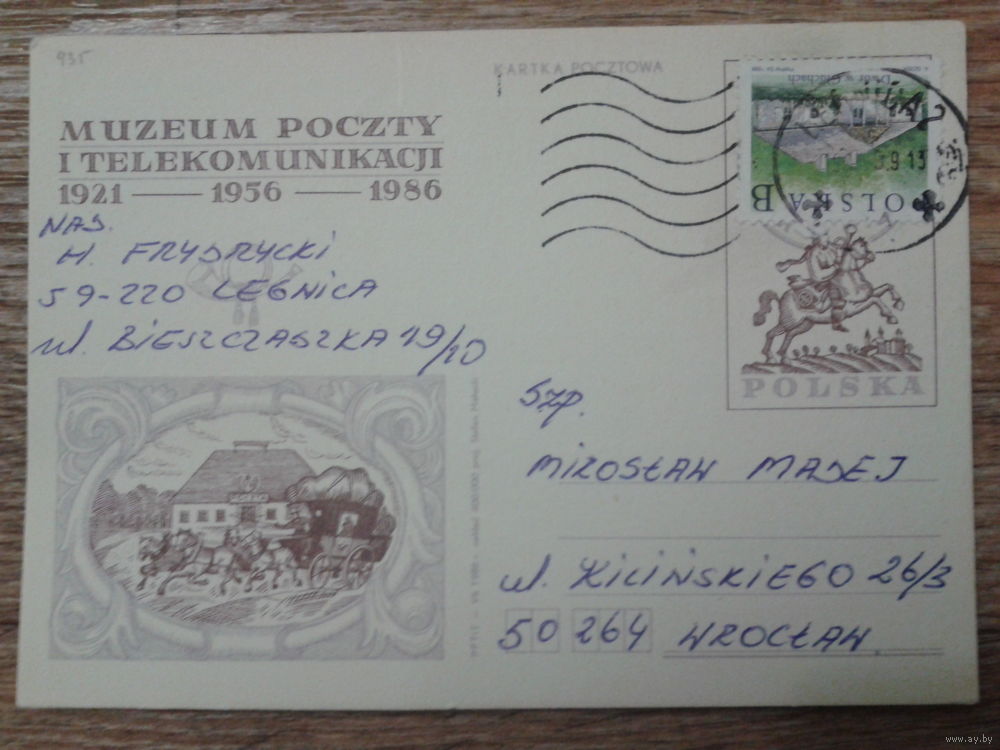 935
KARTKA POCZTOWA
MUZEUM POCZTY
I TELEKOMUNIKACJI
1921 — 1956 — 1986
NAD.
H. FRYDRYCKI
59-220 LEGNICA
ul. BIESZCZADZKA 19/10
Dwór w Głuchach
POLSKA B
9.13
POLSKA
Szp.
MIROSŁAW MADEJ
ul. KILIŃSKIEGO 26/3
50 264 WROCŁAW
www.ay.by